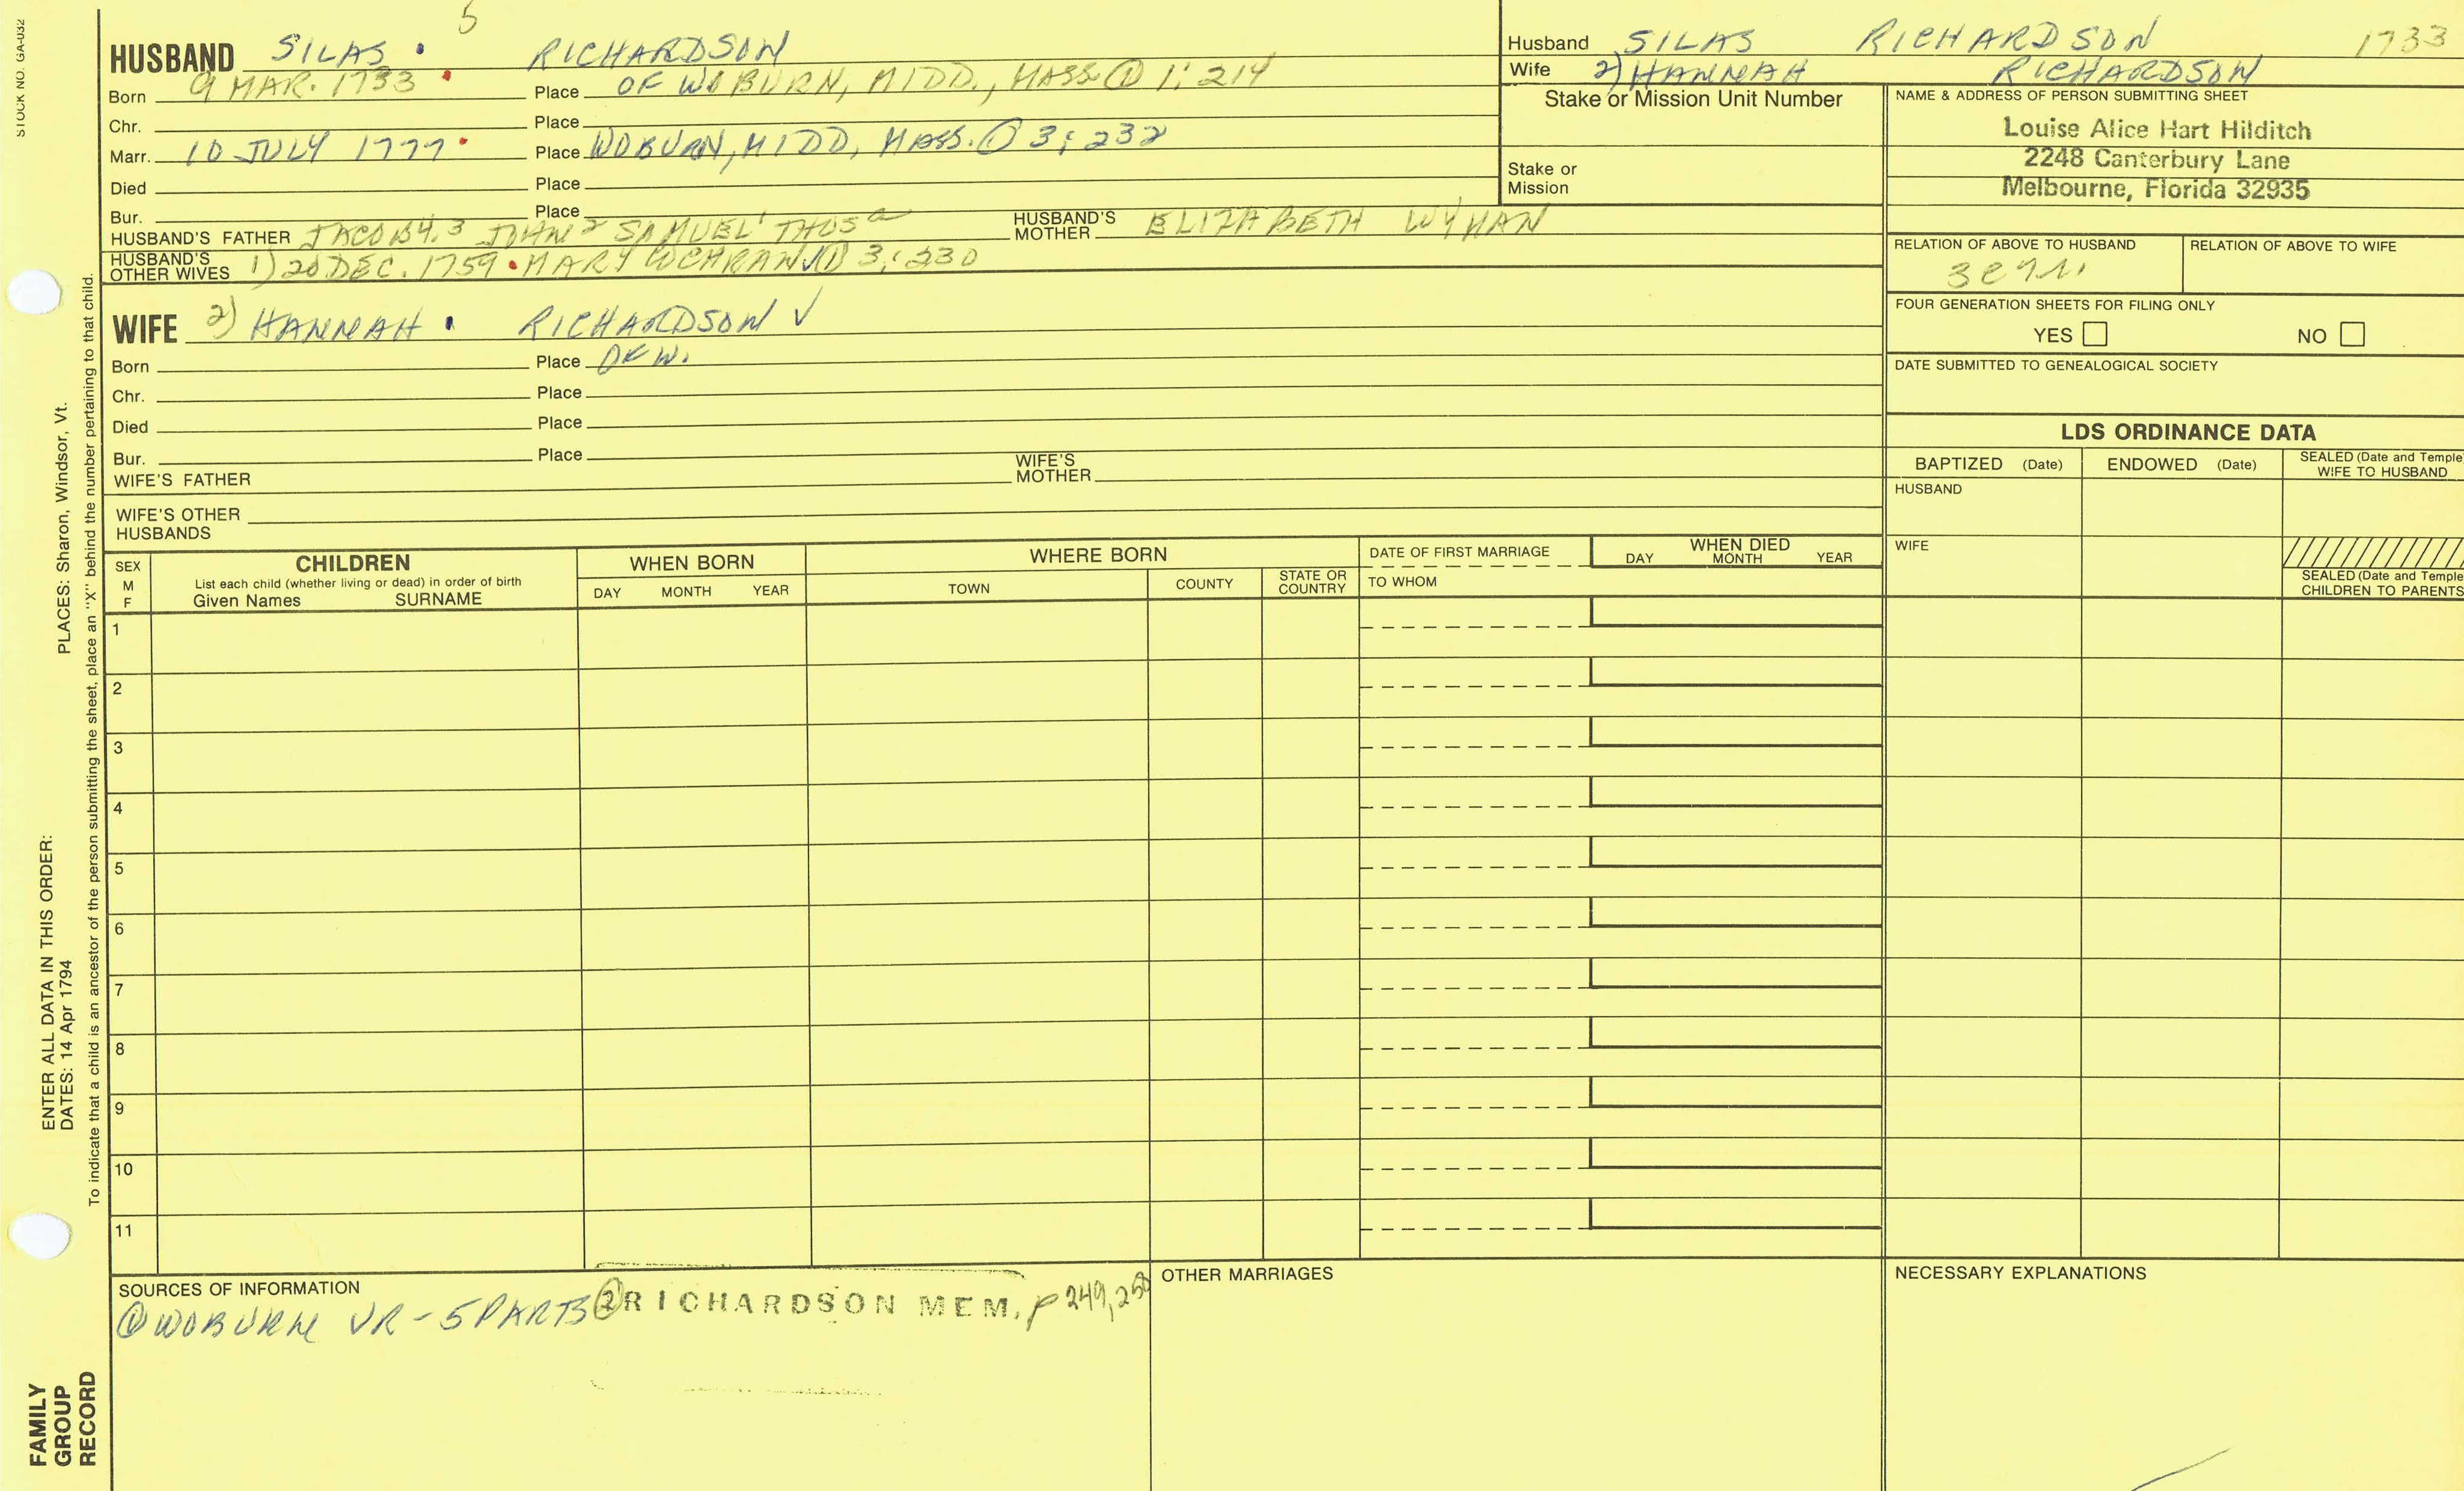 STOCK NO. GA-032
5
HUSBAND SILAS RICHARDSON
Born 9 MAR. 1733 Place OF WOBURN, MIDD., MASS. ① 1:214
Chr. Place
Marr. 10 JULY 1777 Place WOBURN, MIDD, MASS. ① 3:232
Died Place
Bur. Place
HUSBAND'S FATHER JACOB4,3 JOHN2 SAMUEL1 THOSa HUSBAND'S MOTHER ELIZABETH WYMAN
HUSBAND'S OTHER WIVES 1) 20 DEC. 1759 MARY COCHRAN ① 3:230
WIFE 2) HANNAH RICHARDSON √
Born Place OF W.
Chr. Place
Died Place
Bur. Place
WIFE'S FATHER WIFE'S MOTHER
WIFE'S OTHER HUSBANDS
Husband SILAS RICHARDSON 1733
Wife 2) HANNAH RICHARDSON
Stake or Mission Unit Number
Stake or Mission
NAME & ADDRESS OF PERSON SUBMITTING SHEET
Louise Alice Hart Hilditch
2248 Canterbury Lane
Melbourne, Florida 32935
RELATION OF ABOVE TO HUSBAND RELATION OF ABOVE TO WIFE
FOUR GENERATION SHEETS FOR FILING ONLY
YES NO
DATE SUBMITTED TO GENEALOGICAL SOCIETY
LDS ORDINANCE DATA
BAPTIZED (Date) ENDOWED (Date) SEALED (Date and Temple WIFE TO HUSBAND
HUSBAND
WIFE
SEALED (Date and Temple
CHILDREN TO PARENTS
SEX M F
CHILDREN
List each child (whether living or dead) in order of birth
Given Names SURNAME
WHEN BORN
DAY MONTH YEAR
WHERE BORN
TOWN COUNTY STATE OR COUNTRY
DATE OF FIRST MARRIAGE
TO WHOM
WHEN DIED
DAY MONTH YEAR
1
2
3
4
5
6
7
8
9
10
11
SOURCES OF INFORMATION
① WOBURN VR - 5 PARTS ② RICHARDSON MEM. P 249, 250
OTHER MARRIAGES
NECESSARY EXPLANATIONS
ENTER ALL DATA IN THIS ORDER:
DATES: 14 Apr 1794 PLACES: Sharon, Windsor, Vt.
To indicate that a child is an ancestor of the person submitting the sheet, place an "X" behind the number pertaining to that child.
FAMILY
GROUP
RECORD